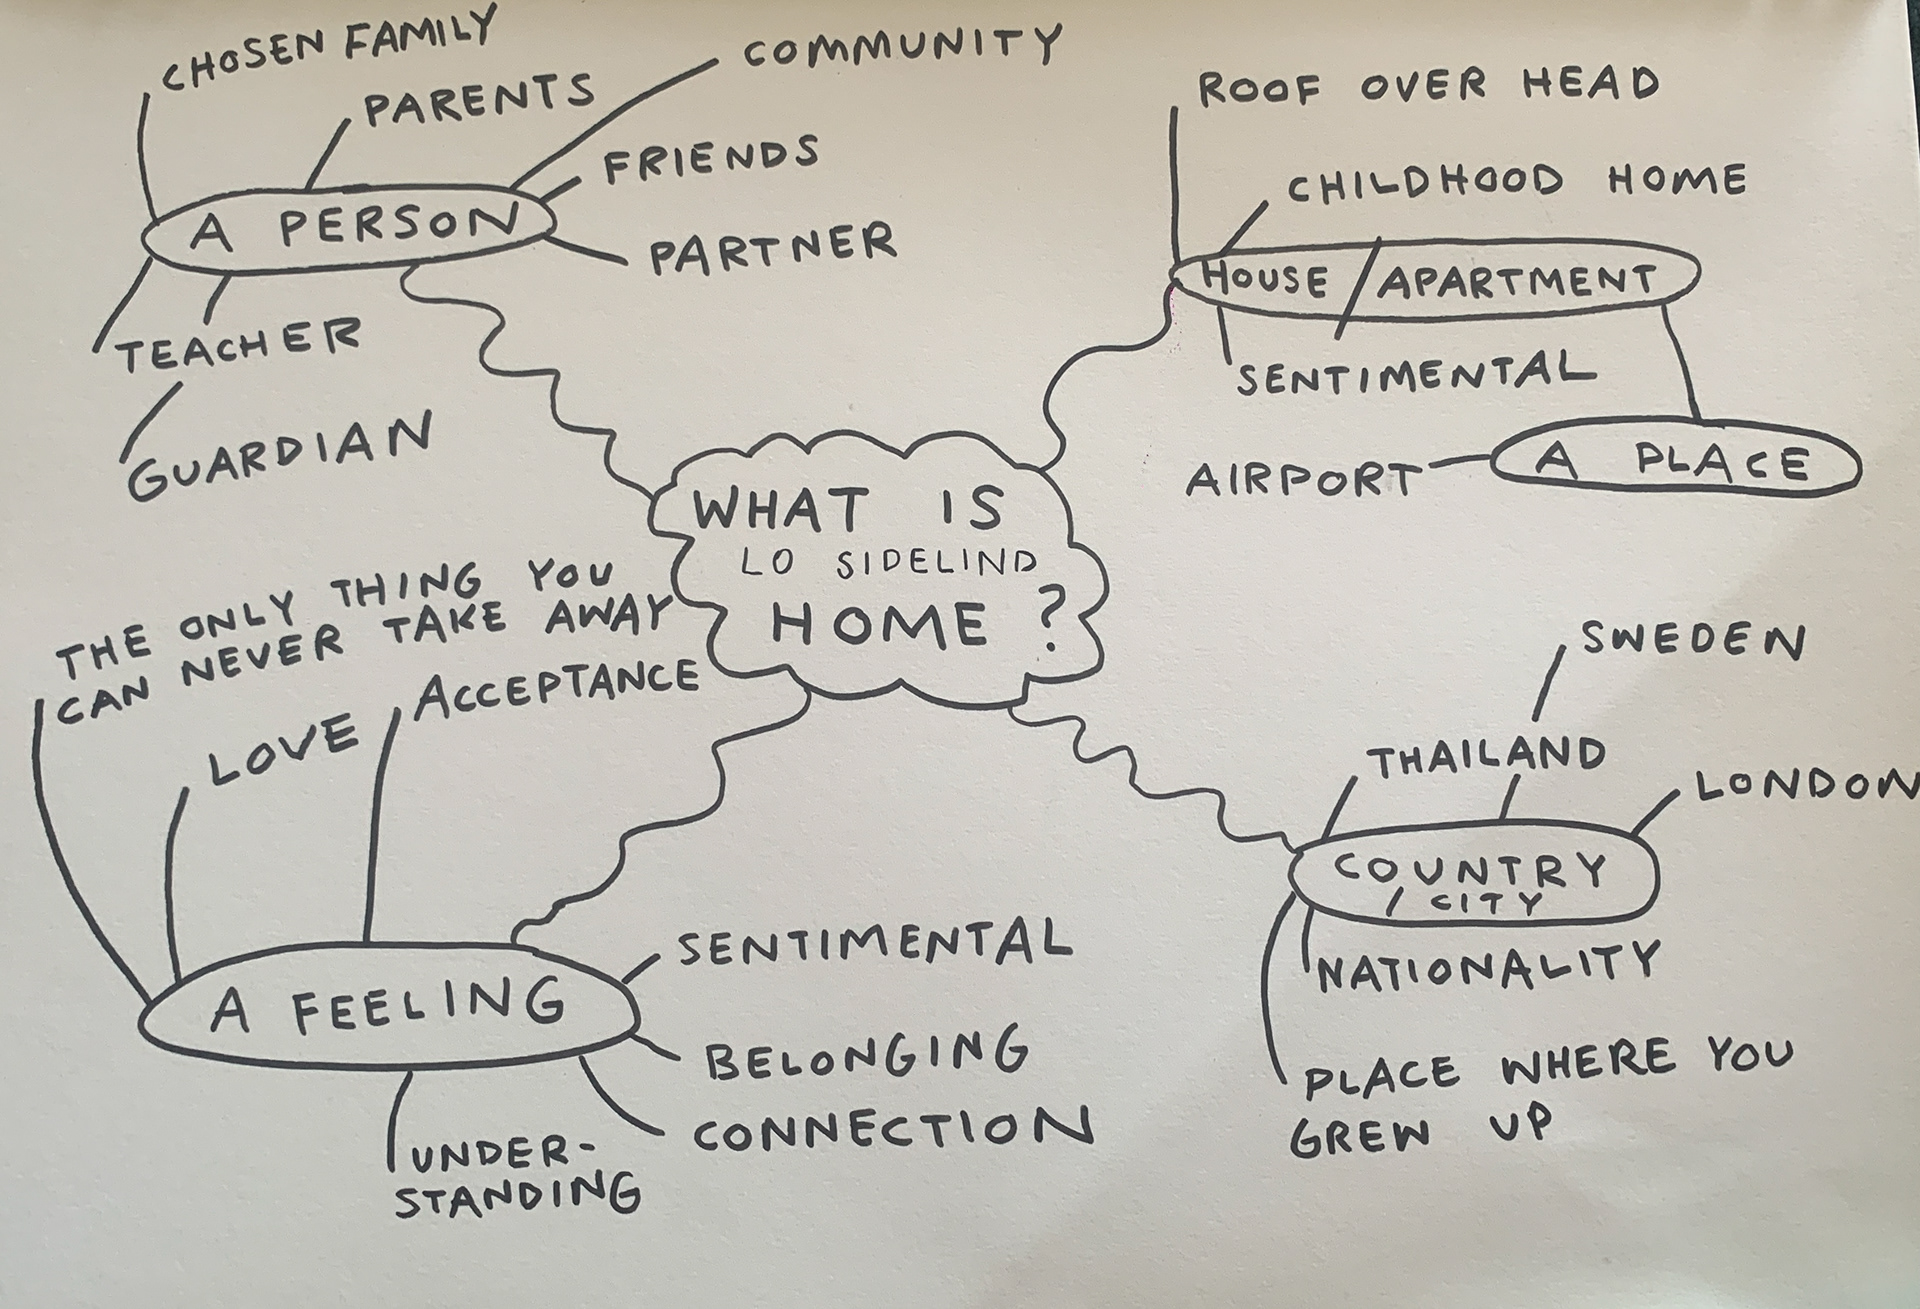 CHOSEN FAMILY
PARENTS
COMMUNITY
FRIENDS
A PERSON
PARTNER
TEACHER
GUARDIAN
ROOF OVER HEAD
CHILDHOOD HOME
HOUSE / APARTMENT
SENTIMENTAL
AIRPORT
A PLACE
WHAT IS
LO SIDELIND
HOME ?
THE ONLY THING YOU
CAN NEVER TAKE AWAY
LOVE
ACCEPTANCE
A FEELING
SENTIMENTAL
BELONGING
CONNECTION
UNDER-
STANDING
SWEDEN
THAILAND
LONDON
COUNTRY
/ CITY
NATIONALITY
PLACE WHERE YOU
GREW UP